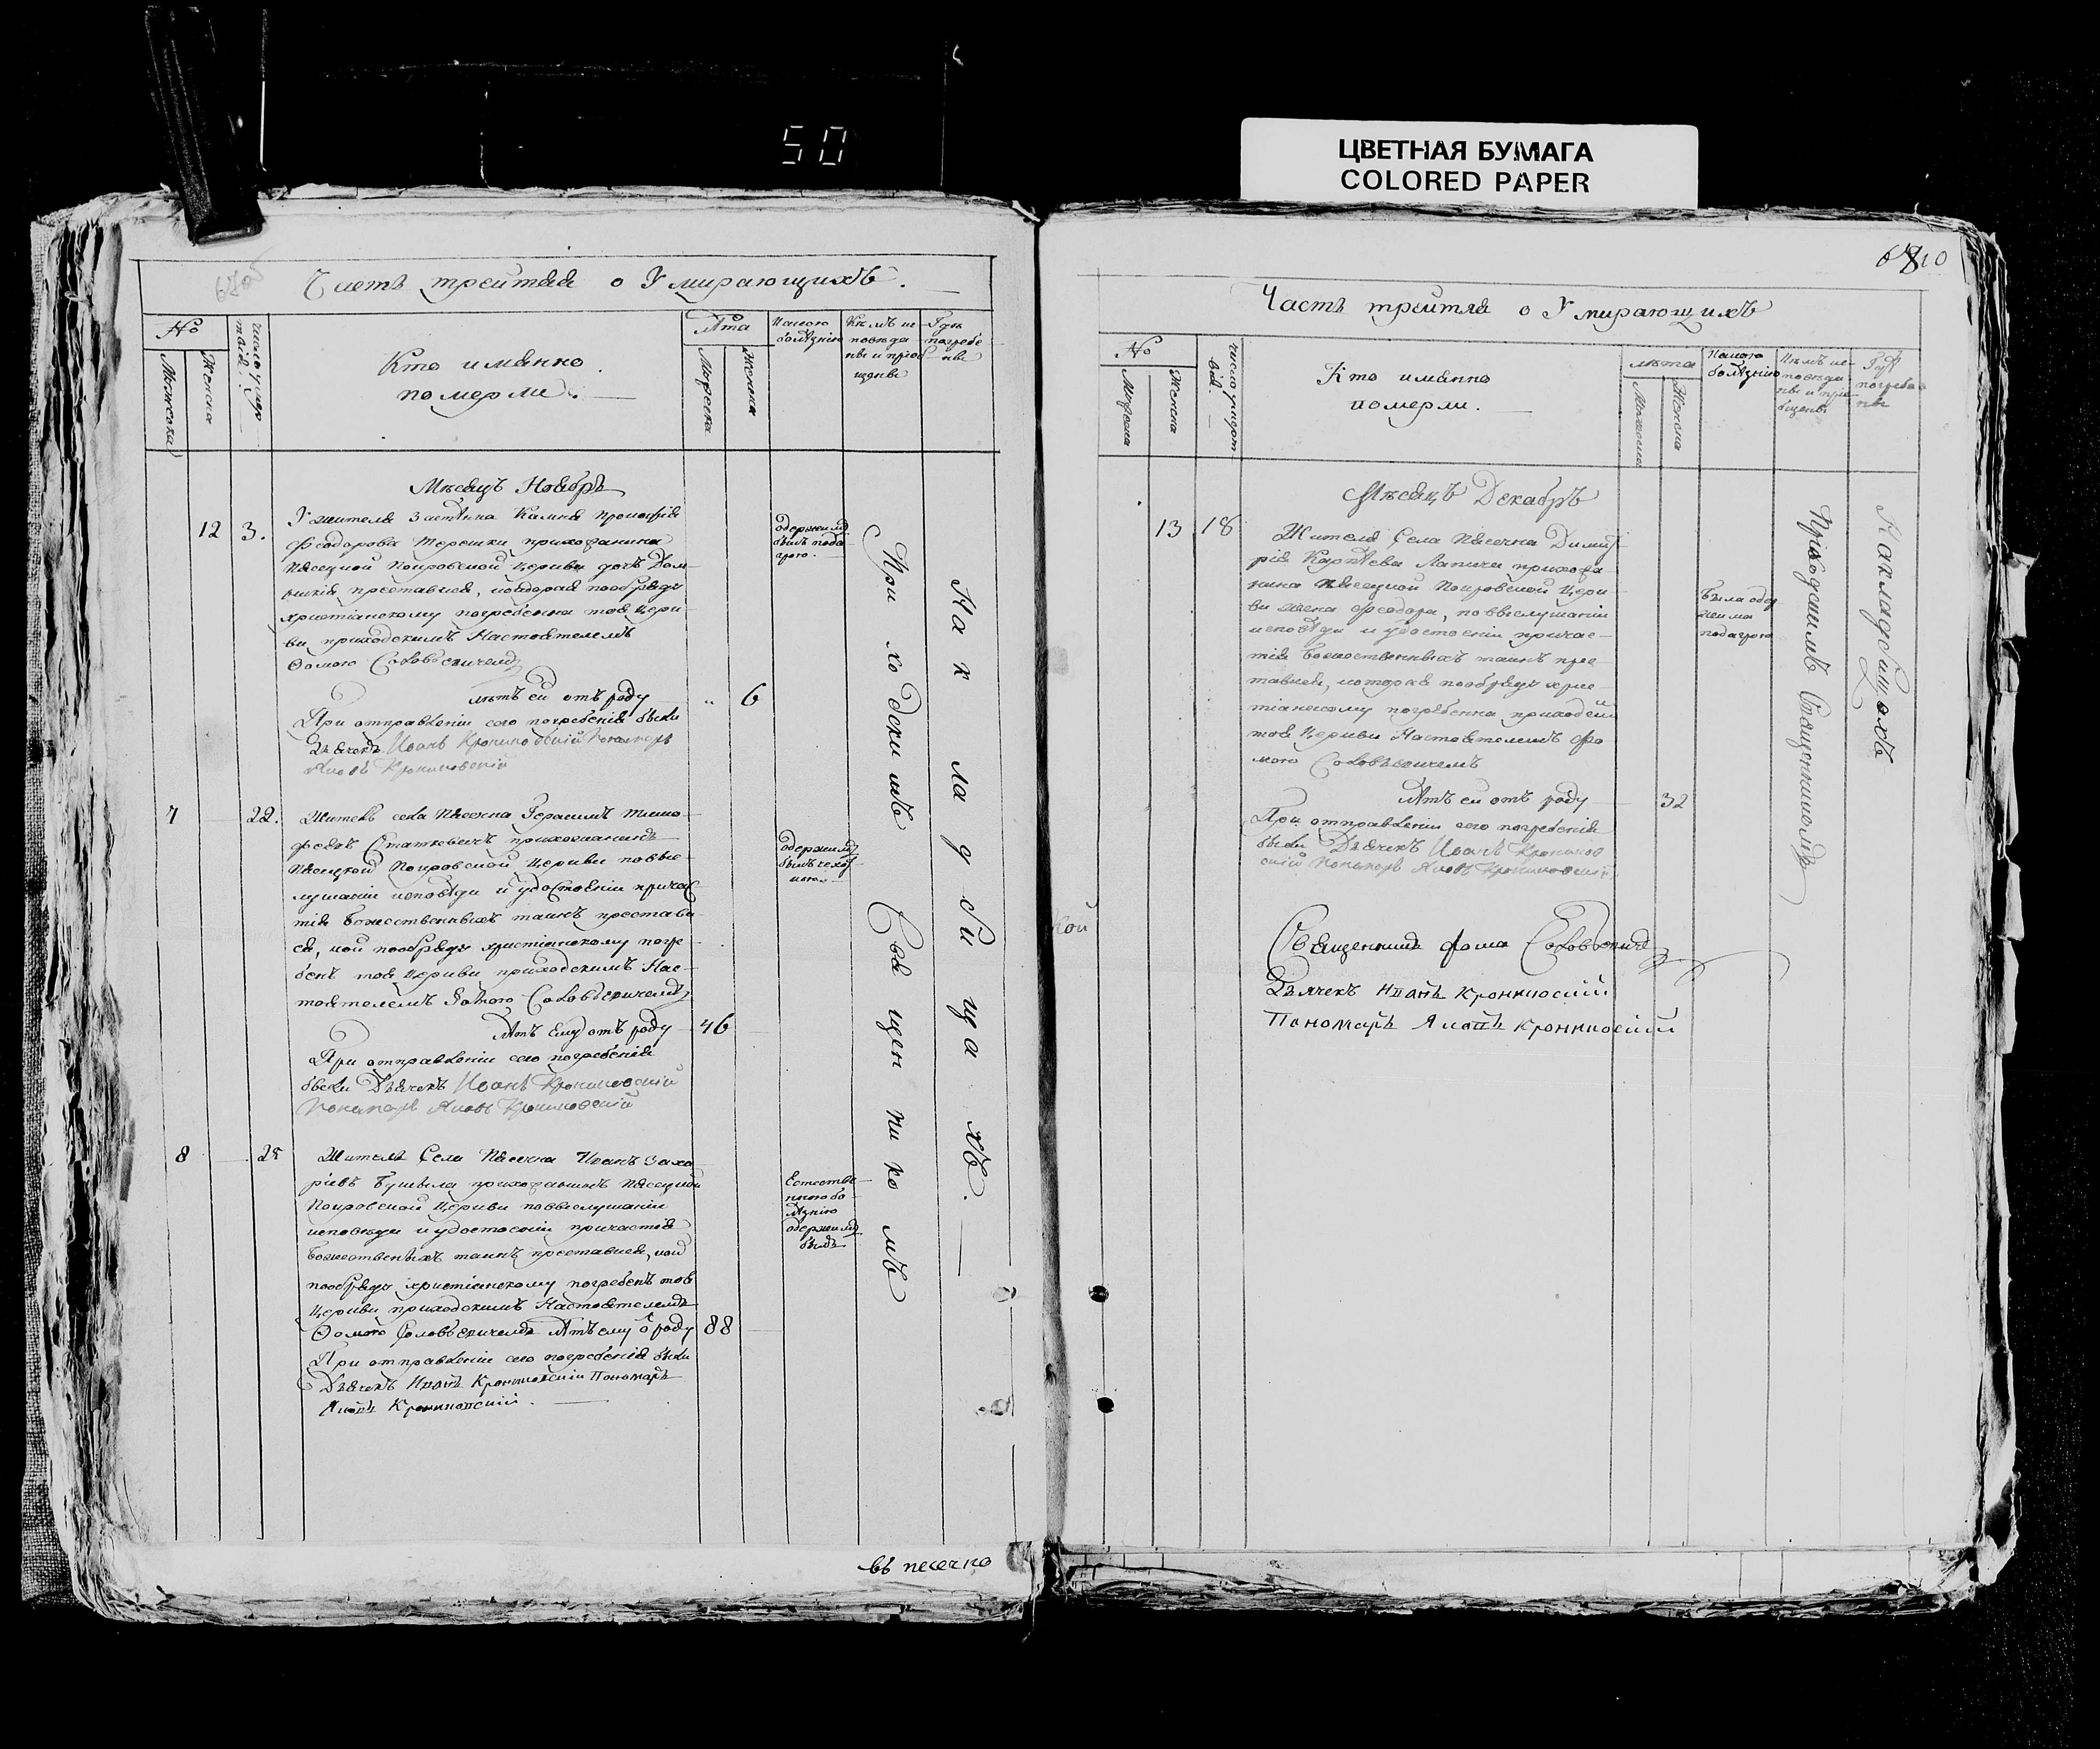 50
ЦВЕТНАЯ БУМАГА
COLORED PAPER
Часть трейтая о Умирающихъ.
№
Мужеска
Женска
число умер
Кто имянно
померли.
Лѣта
Мужеска
Женска
Какою
болѣзнію
Кѣмъ ис
повѣда
ны и прiоб
щены
Гдѣ
погребе
ны
Мѣсяцъ Ноябрь
12 3.
Феодорова Терешки прихожанина
Пясецкой Покровской Церкви дочь Дом-
преставися, которая пообряду
христіанскому погребенна тоя Церк-
ви приходскимъ Настоятелемъ
Ѳомою Соловьевичемъ
лѣтъ ей отъ роду 6
При отправленіи сего погребенія были
Дьячекъ Иоанъ Крониковскій Пономарь
Яковъ Крониковскій
одержима
была пода
грою.
7 22.
Житель села Пясечна Герасимъ Тимо-
феевъ Статкевичъ прихожанинъ
Пясецкой Покровской Церкви повыс-
лушаніи исповѣди и удостоеніи причас
тія Божественныхъ таинъ преставы
ся, кой пообряду христіанскому погре-
бенъ тоя Церкви приходскимъ Нас-
тоятелемъ Ѳомою Соловьевичемъ
Лѣтъ Ему отъ роду 46
При отправленіи сего погребенія
были Дьячекъ Иоанъ Крониковскій
Пономарь Яковъ Крониковскій
одержимъ
былъ чехот
кою
8 25
Житель Села Пясечна Иоанъ Заха
ріевъ прихожанинъ Пясецкой
Покровской Церкви повыслушаніи
исповѣди и удостоеніи причастія
Божественныхъ таинъ преставися, кой
пообряду христіанскому погребенъ тоя
Церкви приходскимъ Настоятелемъ
Ѳомою Соловьевичемъ Лѣтъ ему о роду 88
При отправленіи сего погребенія были
Дьячекъ Иоанъ Крониковскій Пономарь
Яковъ Крониковскій.
Естестве
нною бо
лѣзнію
одержимъ
былъ
Приходскимъ Священникомъ
Накладбищахъ.
въ песечно
Часть трейтія о Умирающихъ
№
Мужеска
Женска
Кто имянно
померли.
лѣта
Мужеска
Женска
Какою
болѣзнію
Кѣмъ ис-
повѣда
ны и прі
бщены
Гдѣ
погребе
ны
Мѣсяцъ Декабрь
13 18
Жителя Села Пясечна Димит
рія Карпѣева Лапича прихожа
нина Пясецкой Покровской Церк
ви жена Феодора, повыслушаніи
исповѣди и удостоеніи причас-
тія Божественныхъ таинъ прес
тавися, которая пообряду хрис
тіанскому погребенна приходским
тоя Церкви Настоятелемъ Фо
мою Соловьевичемъ
Лѣтъ ей отъ роду 32
При отправленіи сего погребенія
были Дьячекъ Иоанъ Кроников
скій Пономарь Яковъ Крониковскій
Была одер
жима
подагрою
Приходскимъ Священникомъ
Накладбищахъ
Священникъ Фома Соловьевичъ
Дьячекъ Иоанъ Крониковскій
Пономарь Яковъ Крониковскій